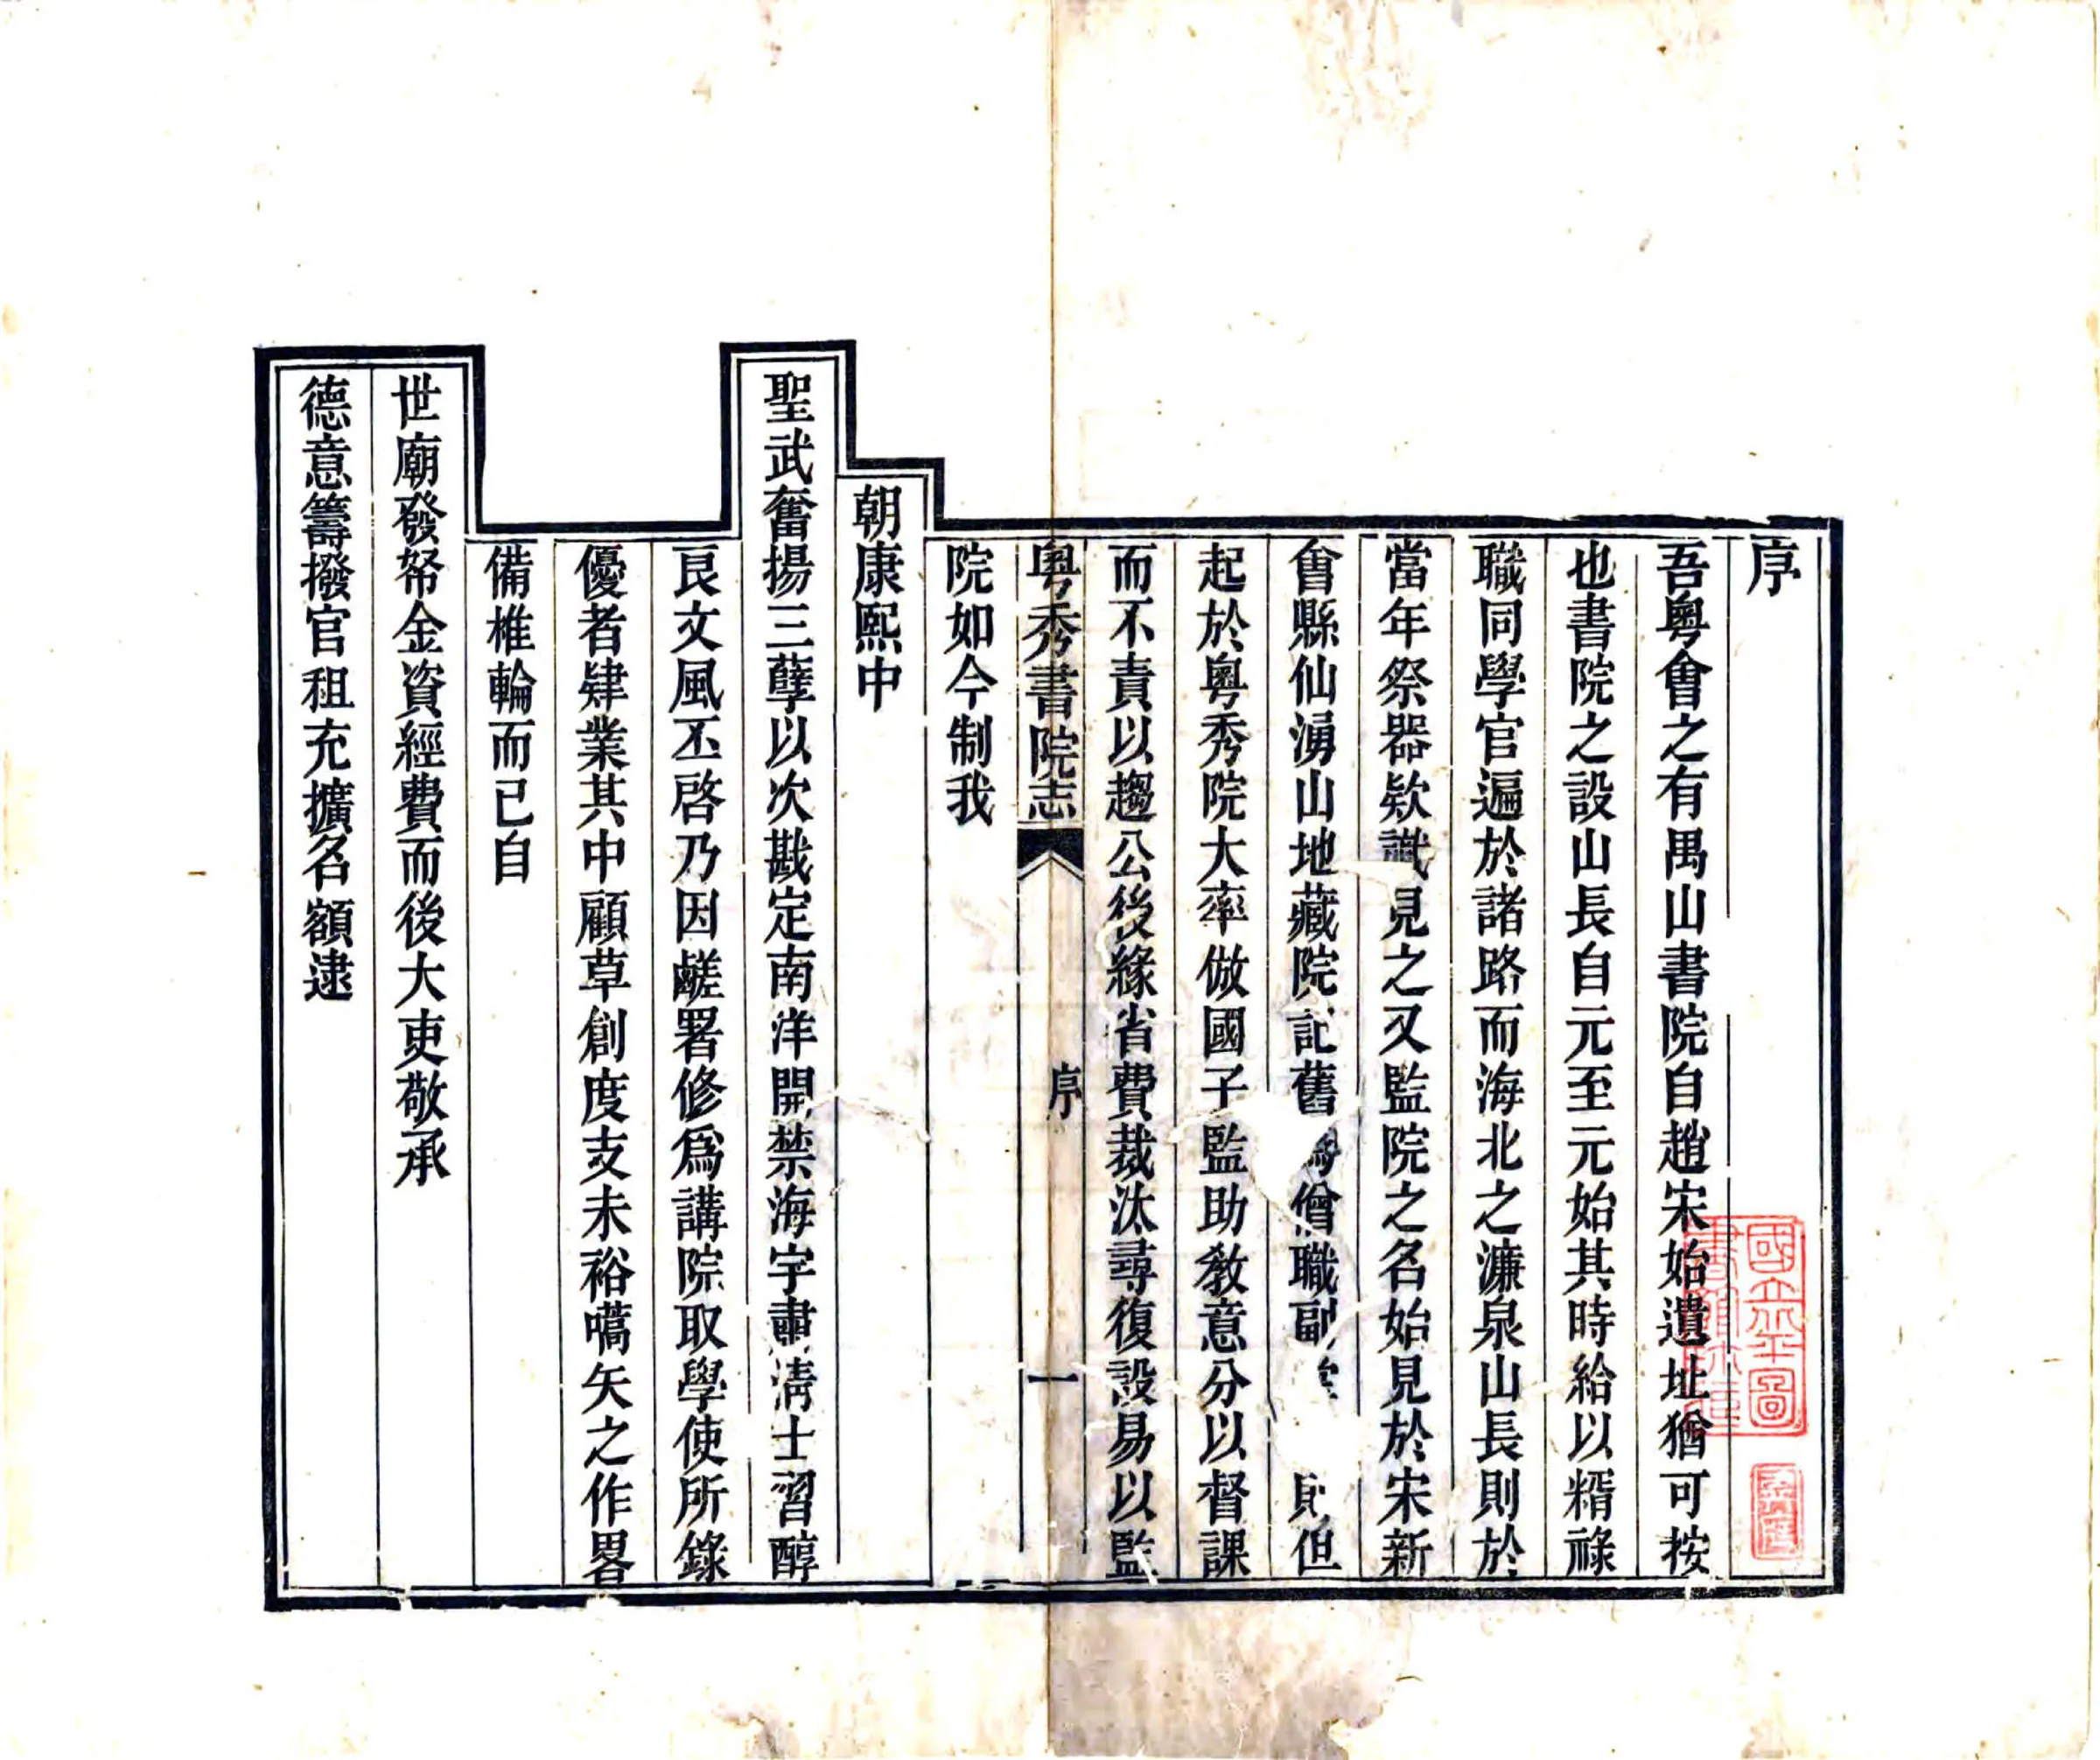 序
吾粤會之有禺山書院自趙宋始遺址猶可按
也書院之設山長自元至元始其時給以糈祿
職同學官遍於諸路而海北之濂泉山長則於
當年祭器欵識見之又監院之名始見於宋新
會縣仙湧山地藏院記舊爲僧職副則但
起於粤秀院大率倣國子監助教意分以督課
而不責以趨公後緣省費裁汰尋復設易以監
粤秀書院志 序 一
院如今制我
朝康熙中
聖武奮揚三孽以次戡定南洋開禁海宇肅清士習醇
良文風丕啓乃因鹺署修爲講院取學使所錄
優者肄業其中顧草創度支未裕嚆矢之作畧
備椎輪而已自
世廟發帑金資經費而後大吏敬承
德意籌撥官租充擴名額逮
國立北平圖
書館珍藏